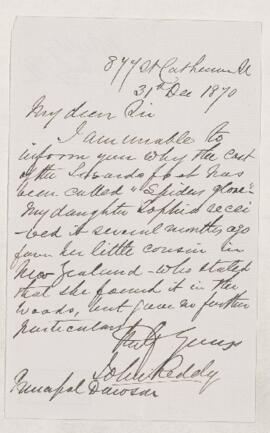 877 St Catherine St
31st Dec 1870
My dear Sir
I am unable to
inform you why the cast
of the Lizards foot has
been called "Spiders glove"
My daughter Sophia recei
-ved it several months ago
from her little cousin in
New Zealand - who stated
that she found it in the
woods, but gave no further
particulars
Truly Yours
John Reddy
Principal Dawson